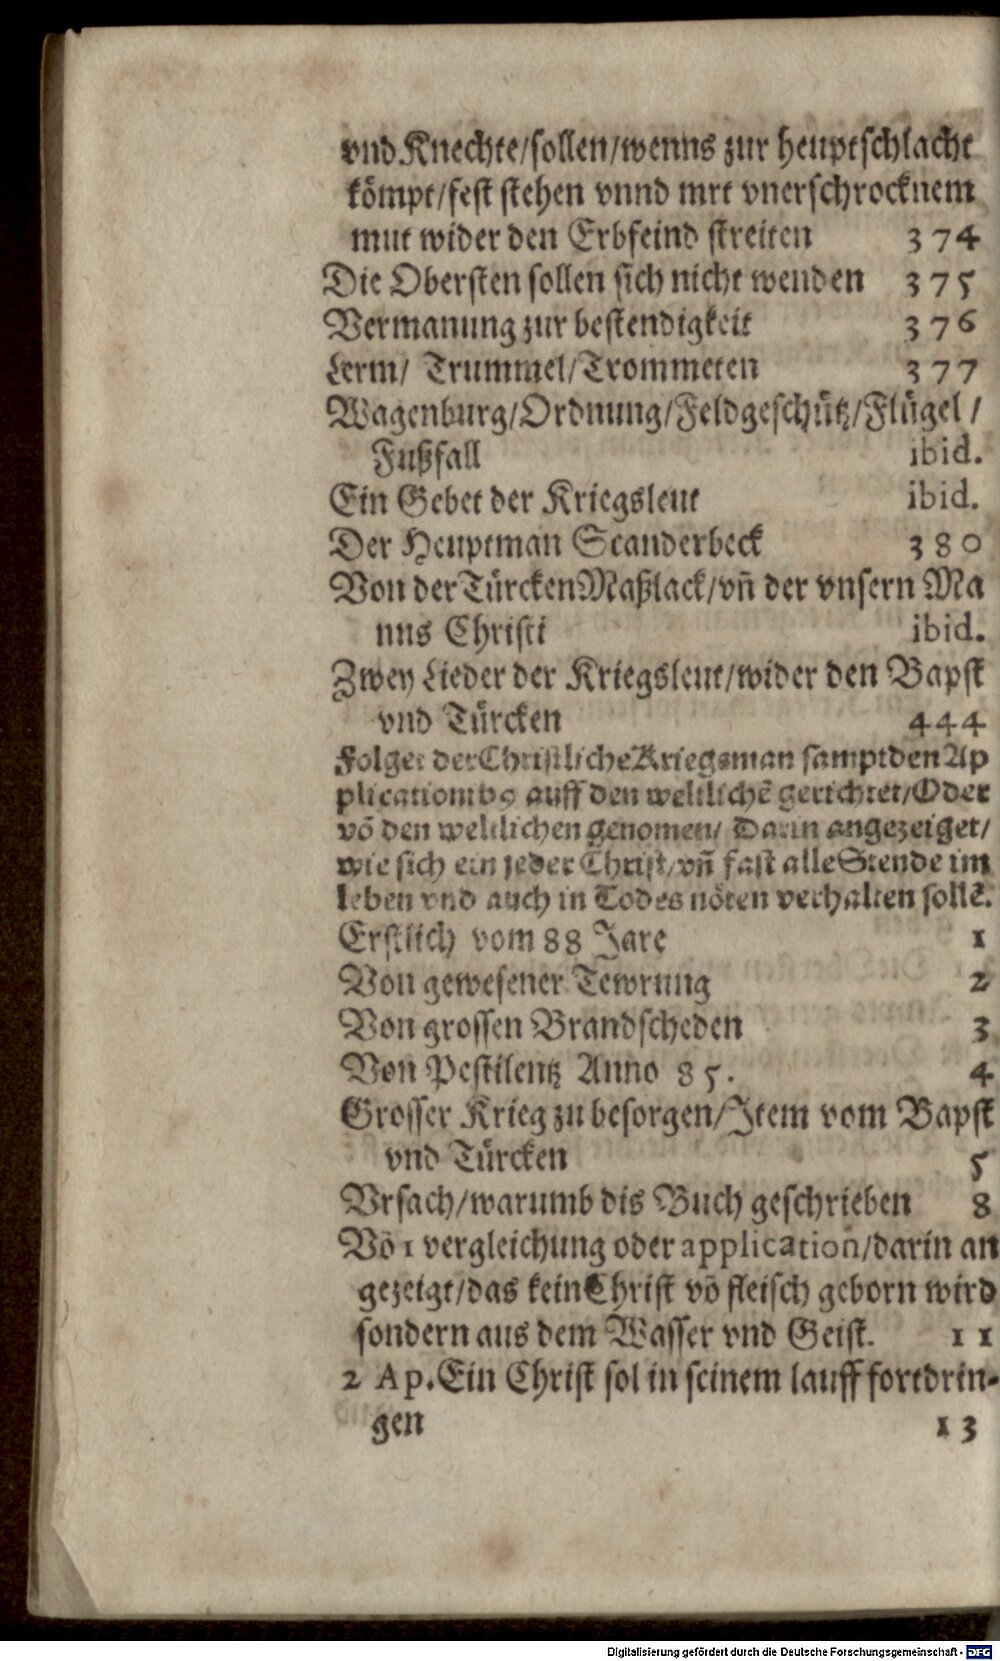 vnd Knechte/sollen/wenns zur heuptschlacht
kömpt/fest stehen vnnd mrt vnerschrocknem
mut wider den Erbfeind streiten 374
Die Obersten sollen sich nicht wenden 375
Vermanung zur bestendigkeit 376
Lerm/ Trummel/Trommeten 377
Wagenburg/Ordnung/Feldgeschütz/Flügel /
Fußfall ibid.
Ein Gebet der Kriegsleut ibid.
Der Heuptman Scanderbeck 380
Von der Türcken Maßlack/vn̄ der vnsern Ma
nns Christi ibid.
Zwey Lieder der Kriegsleut/wider den Bapst
vnd Türcken 444
Folget der Christliche Kriegsman sampt den Ap
plicationibꝰ auff den weltlichē gerichtet/Oder
vō den weltlichen genomen/ Darin angezeiget/
wie sich ein jeder Christ/vn̄ fast alle Stende im
leben vnd auch in Todes nöten verhalten sollē.
Erstlich vom 88 Jare 1
Von gewesener Tewrung 2
Von grossen Brandscheden 3
Von Pestilentz Anno 85. 4
Grosser Krieg zu besorgen/Item vom Bapst
vnd Türcken 5
Vrsach/warumb dis Buch geschrieben 8
Vō 1 vergleichung oder application/darin an
gezeigt/das kein Christ vō fleisch geborn wird
sondern aus dem Wasser vnd Geist. 11
2 Ap. Ein Christ sol in seinem lauff fortdrin-
gen 13
Digitalisierung gefördert durch die Deutsche Forschungsgemeinschaft - DFG